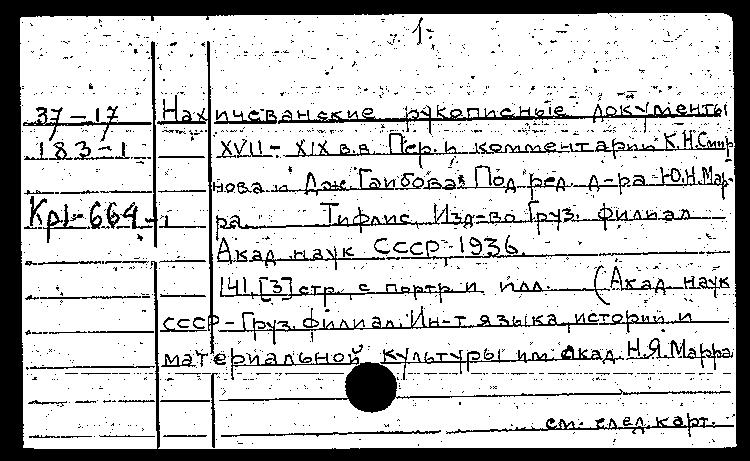 1.
37-17 Нахичеванские рукописные документы
183-1 XVII-XIX в.в. Пер. и комментарии К.Н.Смир
нова и Дж. Гаибова. Под ред. д-ра Ю.Н.Мар-
Кр1-664-1 ра. Тифлис, Изд-во Груз. филиал
Акад. наук СССР, 1936.
141,[3] стр. с портр. и илл. (Акад. наук
СССР-Груз. филиал. Ин-т языка, истории и
материальной культуры им. акад. Н.Я.Марра
см. след. карт.